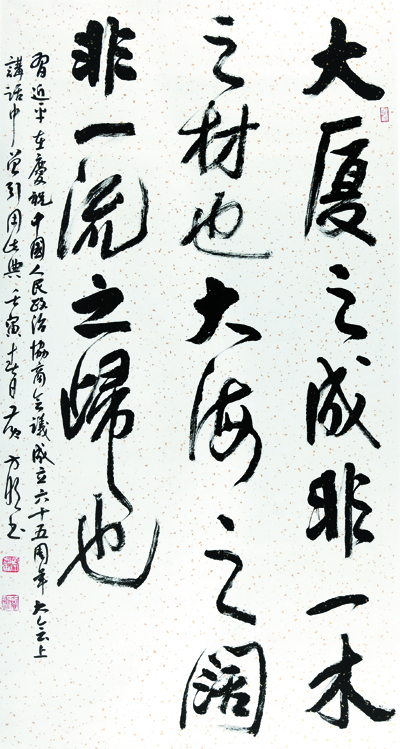 大厦之成非一木
之材也大海之阔
非一流之歸也
習近平在慶祝中國人民政治協商会議成立六十五周年大会上
講話中曾引用此典壬寅